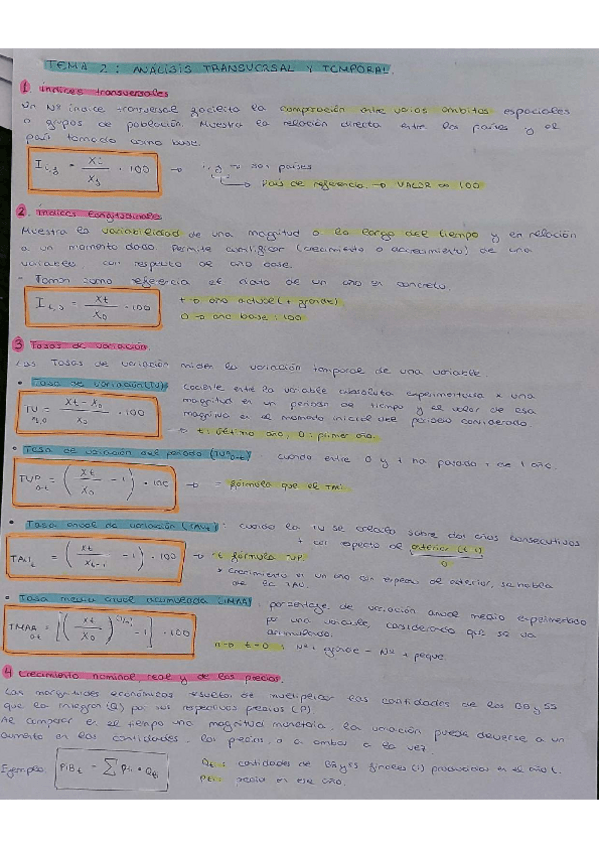 TEMA 2: ANÁLISIS TRANSVERSAL Y TEMPORAL.
1 Índices transversales
Un Nº índice transversal facilita la comparación entre varios ámbitos espaciales
o grupos de población. Muestra la relación directa entre los países y el
país tomado como base.
I i,j = Xi / Xj · 100 → i, j son países
País de referencia → VALOR es 100
2 Índices longitudinales
Muestra la variabilidad de una magnitud a lo largo del tiempo y en relación
a un momento dado. Permite (crecimiento o decrecimiento) de una
variable, con respecto al año base.
- Toman como referencia el dato de un año en concreto.
I t,0 = Xt / X0 · 100 t → año actual (+ grande)
0 → año base: 100
3 Tasas de variación.
Las Tasas de variación miden la variación temporal de una variable.
• Tasa de variación (TV) cociente entre la variable absoluta x una
magnitud en un periodo de tiempo y el valor de esa
magnitud en el momento inicial del periodo considerado.
TV = Xt - X0 / X0 · 100
→ t: último año, 0: primer año.
• Tasa de variación del periodo (TVP 0-t) cuando entre 0 y t ha pasado + de 1 año.
TVP 0-t = (Xt / X0 - 1) · 100 → = fórmula que el
• Tasa anual de variación (TAVt): cuando la TV se calcula sobre dos años consecutivos
t con respecto al anterior (t-1)
0
= (Xt / Xt-1 - 1) · 100 → = fórmula TVP
* Crecimiento en un año con respecto al anterior, se habla
de la TAV.
• Tasa media anual acumulada (TMAA): porcentaje de variación anual medio experimentado
por una variable, considerando que se va
acumulando.
TMAA 0-t = [(Xt / X0)^(1/n) - 1] · 100
n → t - 0: Nº + grande - Nº + peque
4 Crecimiento nominal, real y de los precios.
Las magnitudes económicas resultan de multiplicar las cantidades de los BBySS
que la integran (Q) por sus respectivos precios (P)
Al comparar en el tiempo una magnitud monetaria, la variación puede deberse a un
aumento en las cantidades, los precios, o a ambos a la vez.
Ejemplo: PIBt = Σ Pti · Qti
Qti: cantidades de BByss finales (i) producidas en el año t.
Pti: precio en ese año.